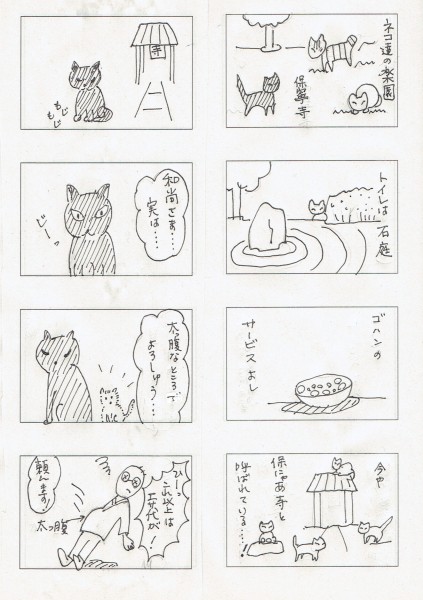 ネコ達の楽園
保寧寺
トイレは
石庭
ゴハンの
サービスよし
今や
保にゃあ寺と
呼ばれている……
寺
もじ
もじ
和尚さま…
実は…
じーっ
太っ腹なところで
よろしゅう…
ひーっ
これ以上は
エサ代が!
太っ腹
頼んます!